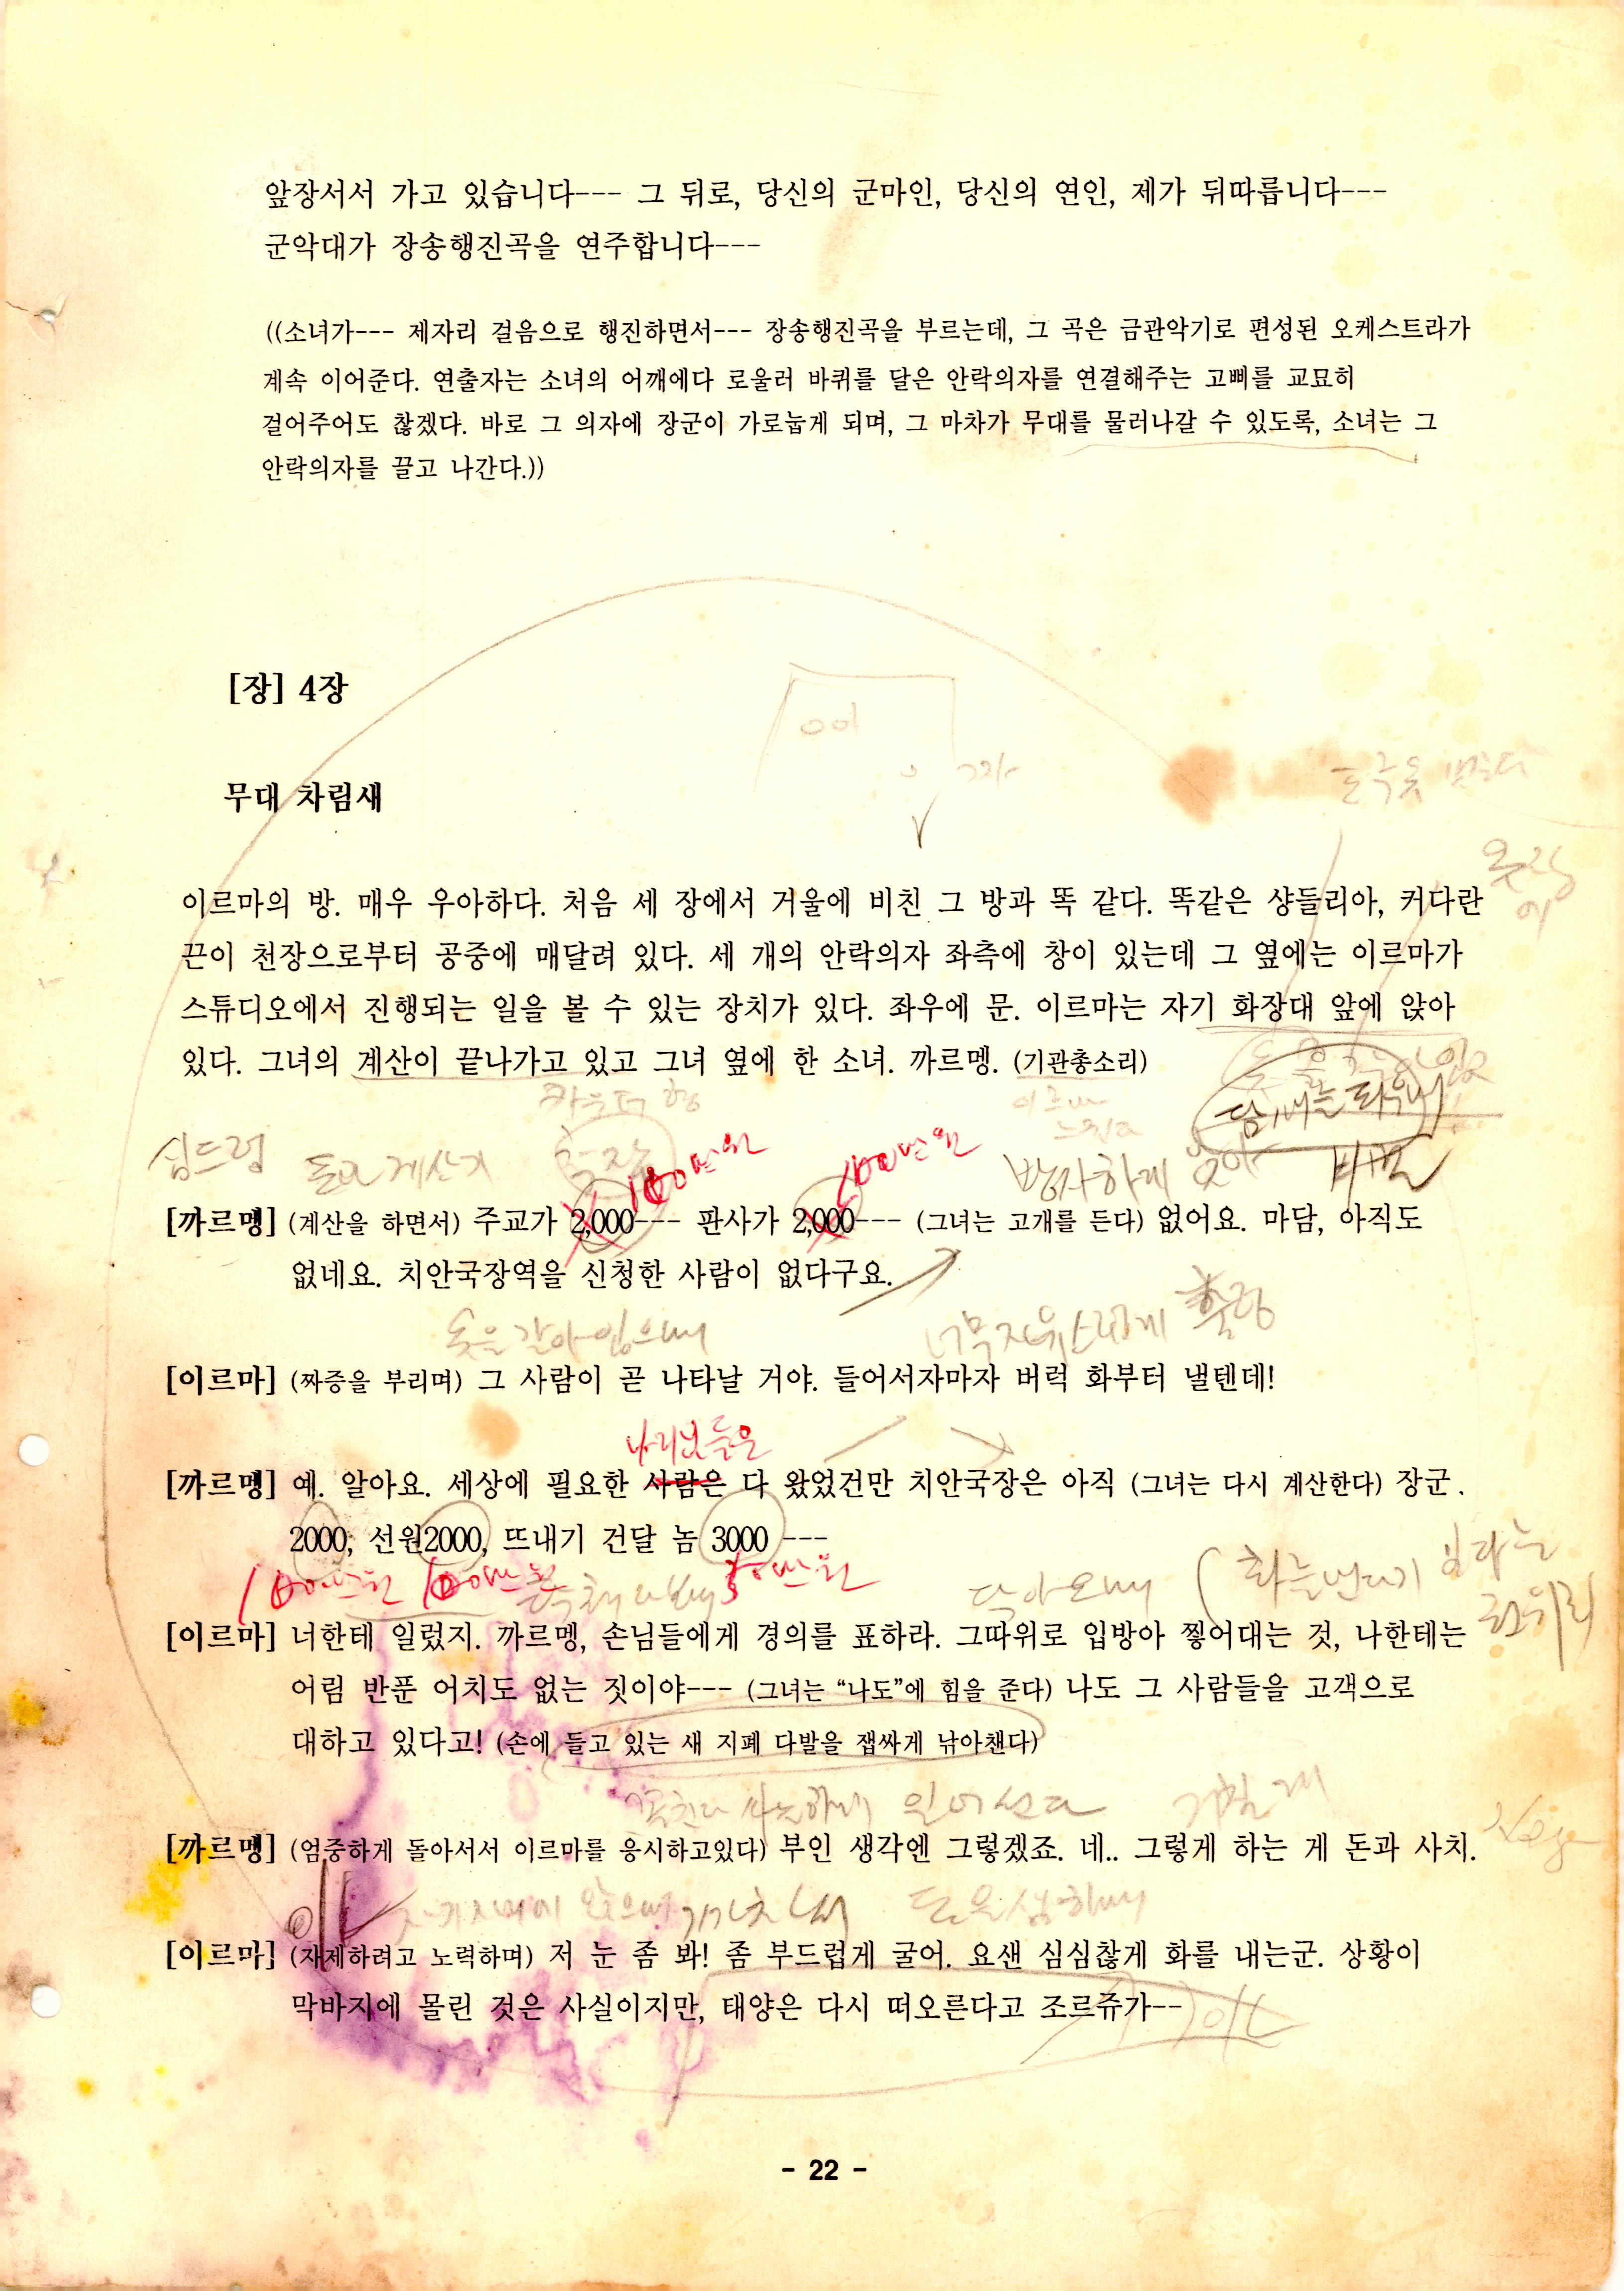 앞장서서 가고 있습니다--- 그 뒤로, 당신의 군마인, 당신의 연인, 제가 뒤따릅니다---
군악대가 장송행진곡을 연주합니다---
((소녀가--- 제자리 걸음으로 행진하면서--- 장송행진곡을 부르는데, 그 곡은 금관악기로 편성된 오케스트라가
계속 이어준다. 연출자는 소녀의 어깨에다 로울러 바퀴를 달은 안락의자를 연결해주는 고삐를 교묘히
걸어주어도 촣겠다. 바로 그 의자에 장군이 가로눕게 되며, 그 마차가 무대를 물러나갈 수 있도록, 소녀는 그
안락의자를 끌고 나간다.))
[장] 4장
무대 차림새
이르마의 방. 매우 우아하다. 처음 세 장에서 거울에 비친 그 방과 똑 같다. 똑같은 샹들리아, 커다란
끈이 천장으로부터 공중에 매달려 있다. 세 개의 안락의자 좌측에 창이 있는데 그 옆에는 이르마가
스튜디오에서 진행되는 일을 볼 수 있는 장치가 있다. 좌우에 문. 이르마는 자기 화장대 앞에 앉아
있다. 그녀의 계산이 끝나가고 있고 그녀 옆에 한 소녀. 까르멩. (기관총소리)
담배를 피우며
심드렁 돈과 계산기
방자하게 웃어
100만원 100만원
[까르멩] (계산을 하면서) 주교가 2,000--- 판사가 2,000--- (그녀는 고개를 든다) 없어요. 마담, 아직도
없네요. 치안국장역을 신청한 사람이 없다구요.
옷을 갈아입으며 너무 자유스럽게
[이르마] (짜증을 부리며) 그 사람이 곧 나타날 거야. 들어서자마자 버럭 화부터 낼텐데!
나리님들은
[까르멩] 예. 알아요. 세상에 필요한 사람은 다 왔었건만 치안국장은 아직 (그녀는 다시 계산한다) 장군.
2000, 선원2000, 뜨내기 건달 놈 3000 ---
100만원 100만원 50만원
[이르마] 너한테 일렀지. 까르멩, 손님들에게 경의를 표하라. 그따위로 입방아 찧어대는 것, 나한테는
어림 반푼 어치도 없는 짓이야--- (그녀는 “나도”에 힘을 준다) 나도 그 사람들을 고객으로
대하고 있다고! (손에 들고 있는 새 지폐 다발을 잽싸게 낚아챈다)
일어선다
[까르멩] (엄중하게 돌아서서 이르마를 응시하고있다) 부인 생각엔 그렇겠죠. 네.. 그렇게 하는 게 돈과 사치.
돈을 셈하며
[이르마] (자제하려고 노력하며) 저 눈 좀 봐! 좀 부드럽게 굴어. 요샌 심심찮게 화를 내는군. 상황이
막바지에 몰린 것은 사실이지만, 태양은 다시 떠오른다고 조르쥬가--
- 22 -